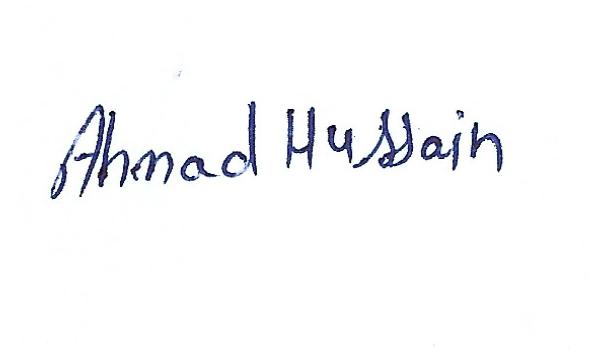 Ahmad Hussain